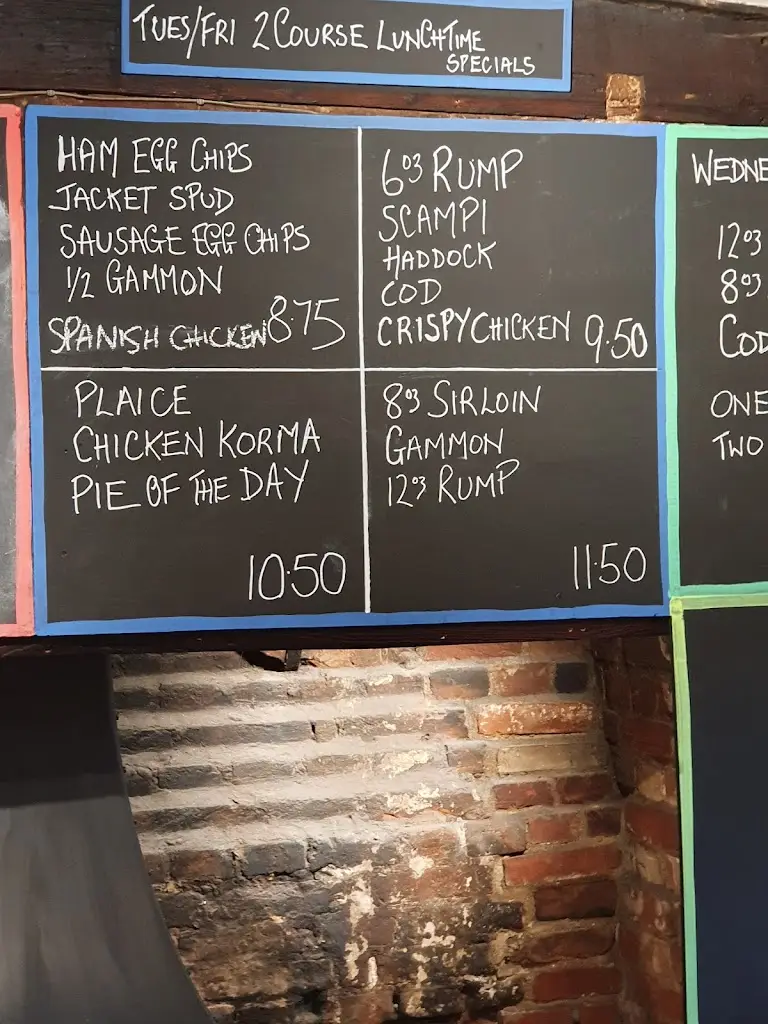 TUES/FRI 2 COURSE LUNCHTIME
SPECIALS
HAM EGG CHIPS
JACKET SPUD
SAUSAGE EGG CHIPS
1/2 GAMMON
SPANISH CHICKEN 8.75
6oz RUMP
SCAMPI
HADDOCK
COD
CRISPY CHICKEN 9.50
PLAICE
CHICKEN KORMA
PIE OF THE DAY
10.50
8oz SIRLOIN
GAMMON
12oz RUMP
11.50
WEDNE
12oz
8oz
COD
ONE
TWO